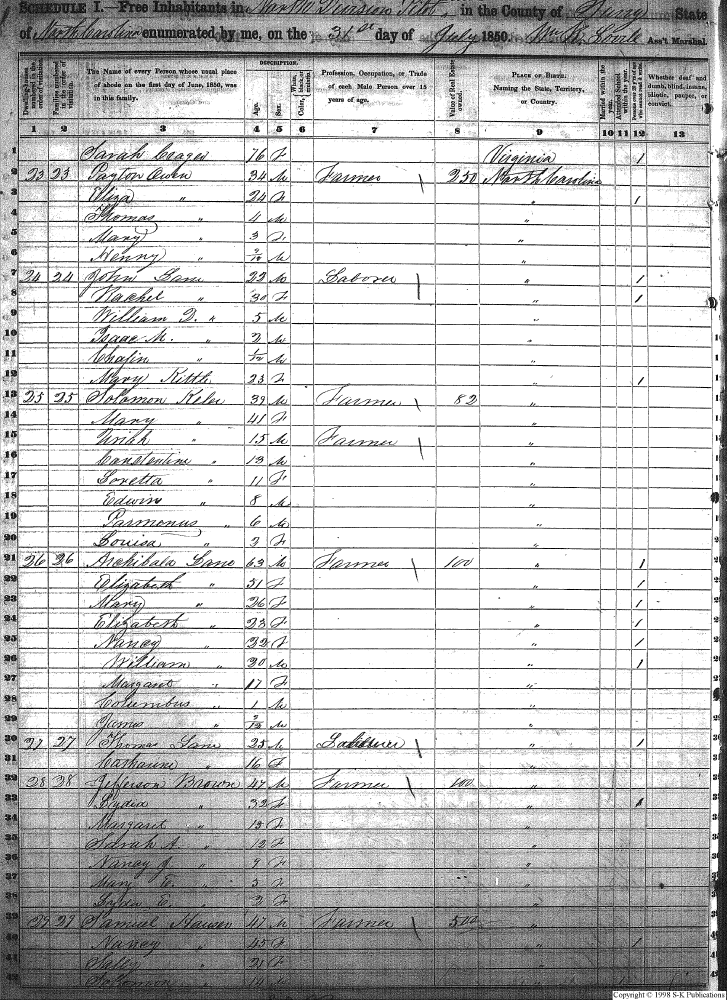 SCHEDULE I.—Free Inhabitants in North Division in the County of Surry State
of North Carolina enumerated by me, on the 31st day of July 1850. Wm Ass't Marshal.
Dwelling-houses numbered in the order of visitation.
Families numbered in the order of visitation.
The Name of every Person whose usual place of abode on the first day of June, 1850, was in this family.
DESCRIPTION.
Age.
Sex.
White, black, or mulatto.
Color,
Profession, Occupation, or Trade of each Male Person over 15 years of age.
Value of Real Estate owned.
PLACE OF BIRTH. Naming the State, Territory, or Country.
Married within the year.
Attended School within the year.
Persons over 20 y'rs of age who cannot read & write.
Whether deaf and dumb, blind, insane, idiotic, pauper, or convict.
1 2 3 4 5 6 7 8 9 10 11 12 13
1 Sarah 76 F Virginia 1
2 23 23 Payton Owen 34 M Farmer 250 North Carolina
3 Eliza " 24 F " 1
4 Thomas " 4 M "
5 Mary " 3 F "
6 Henry " M "
7 24 24 John Lane 22 M Laborer " 1
8 Rachel " 30 F " 1
9 William " 5 M "
10 Isaac M. " 2 M "
11 " 1/12 M "
12 Mary Kittle 23 F " 1
13 25 25 Solomon 39 M Farmer 82 "
14 Mary " 41 F "
15 Uriah " 15 M Farmer "
16 Constentine " 13 M "
17 Loretta " 11 F "
18 Edwin " 8 M "
19 Parmonus " 6 M "
20 Louisa " 2 F "
21 26 26 Archibald Lane 63 M Farmer 100 " 1
22 Elizabeth " 51 F " 1
23 Mary " 26 F " 1
24 Elizabeth " 23 F " 1
25 Nancy " 22 F " 1
26 William " 20 M " 1
27 Margaret " 17 F "
28 Columbus " 1 M "
29 James " M "
30 27 27 Thomas Lane 25 M Laborer " 1
31 Catharine " 16 F "
32 28 28 Jefferson Brown 47 M Farmer 100 "
33 Lydia " 32 F " 1
34 Margaret " 13 F "
35 Sarah A. " 12 F "
36 Nancy J. " 9 F "
37 Mary E. " 3 F "
38 Lydia E. " 2 F "
39 29 29 Samuel Hauser 47 M Farmer 500 "
40 Nancy " 45 F " 1
41 Sally " 21 F "
42 Solomon "
Copyright © 1998 S-K Publications